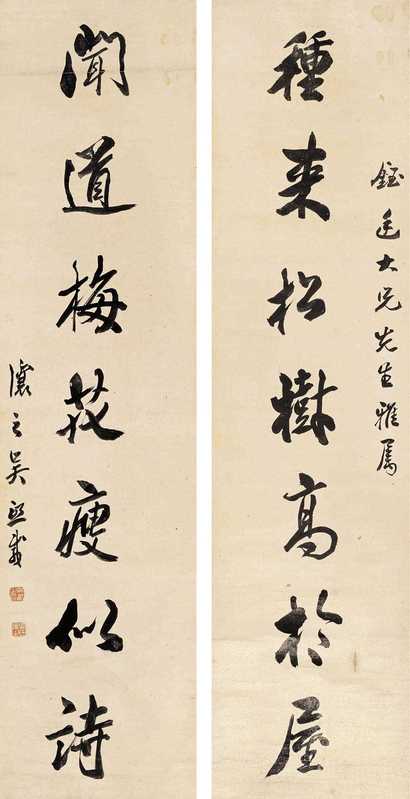 大兄先生雅屬
種来松樹高於屋
聞道梅花瘦似詩
讓之吳熙載